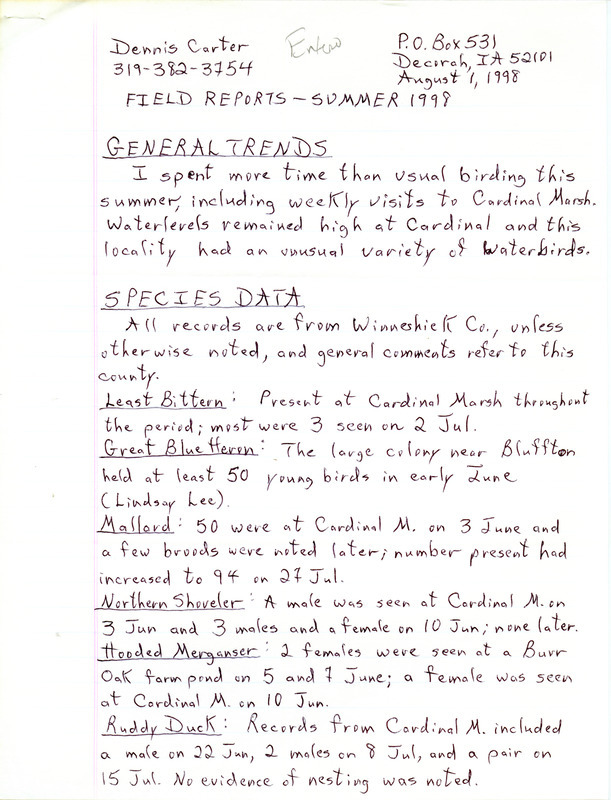 Dennis Carter
319-382-3754
P.O. Box 531
Decorah, IA 52101
August 1, 1998
FIELD REPORTS - SUMMER 1998
GENERAL TRENDS
I spent more time than usual birding this
summer, including weekly visits to Cardinal Marsh.
Waterlevels remained high at Cardinal and this
locality had an unusual variety of waterbirds.
SPECIES DATA
All records are from Winneshiek Co., unless
otherwise noted, and general comments refer to this
county.
Least Bittern: Present at Cardinal Marsh throughout
the period; most were 3 seen on 2 Jul.
Great Blue Heron: The large colony near Bluffton
held at least 50 young birds in early June
(Lindsay Lee).
Mallard: 50 were at Cardinal M. on 3 June and
a few broods were noted later; number present had
increased to 94 on 27 Jul.
Northern Shoveler: A male was seen at Cardinal M. on
3 Jun and 3 males and a female on 10 Jun; none later.
Hooded Merganser: 2 females were seen at a Burr
Oak farm pond on 5 and 7 June; a female was seen
at Cardinal M. on 10 Jun.
Ruddy Duck: Records from Cardinal M. included
a male on 22 Jun, 2 males on 8 Jul, and a pair on
15 Jul. No evidence of nesting was noted.